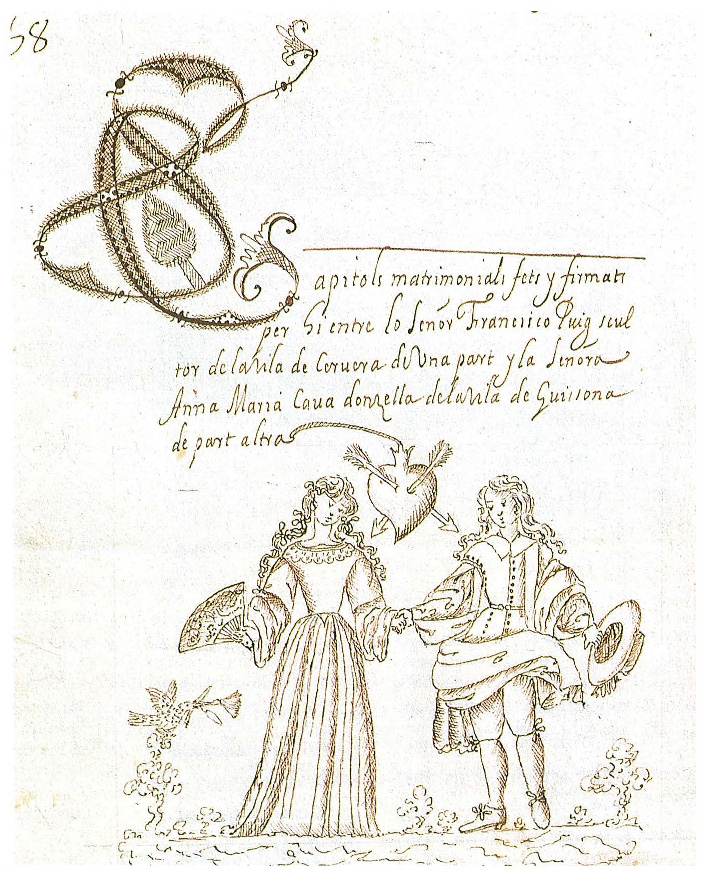 58
Capitols matrimonials fets y firmats
per hi entre lo Señor Francisco Puig scul
tor de la vila de Cervera de Una part y la Señora
Anna Maria Caua donzella de la vila de Guissona
de part altra